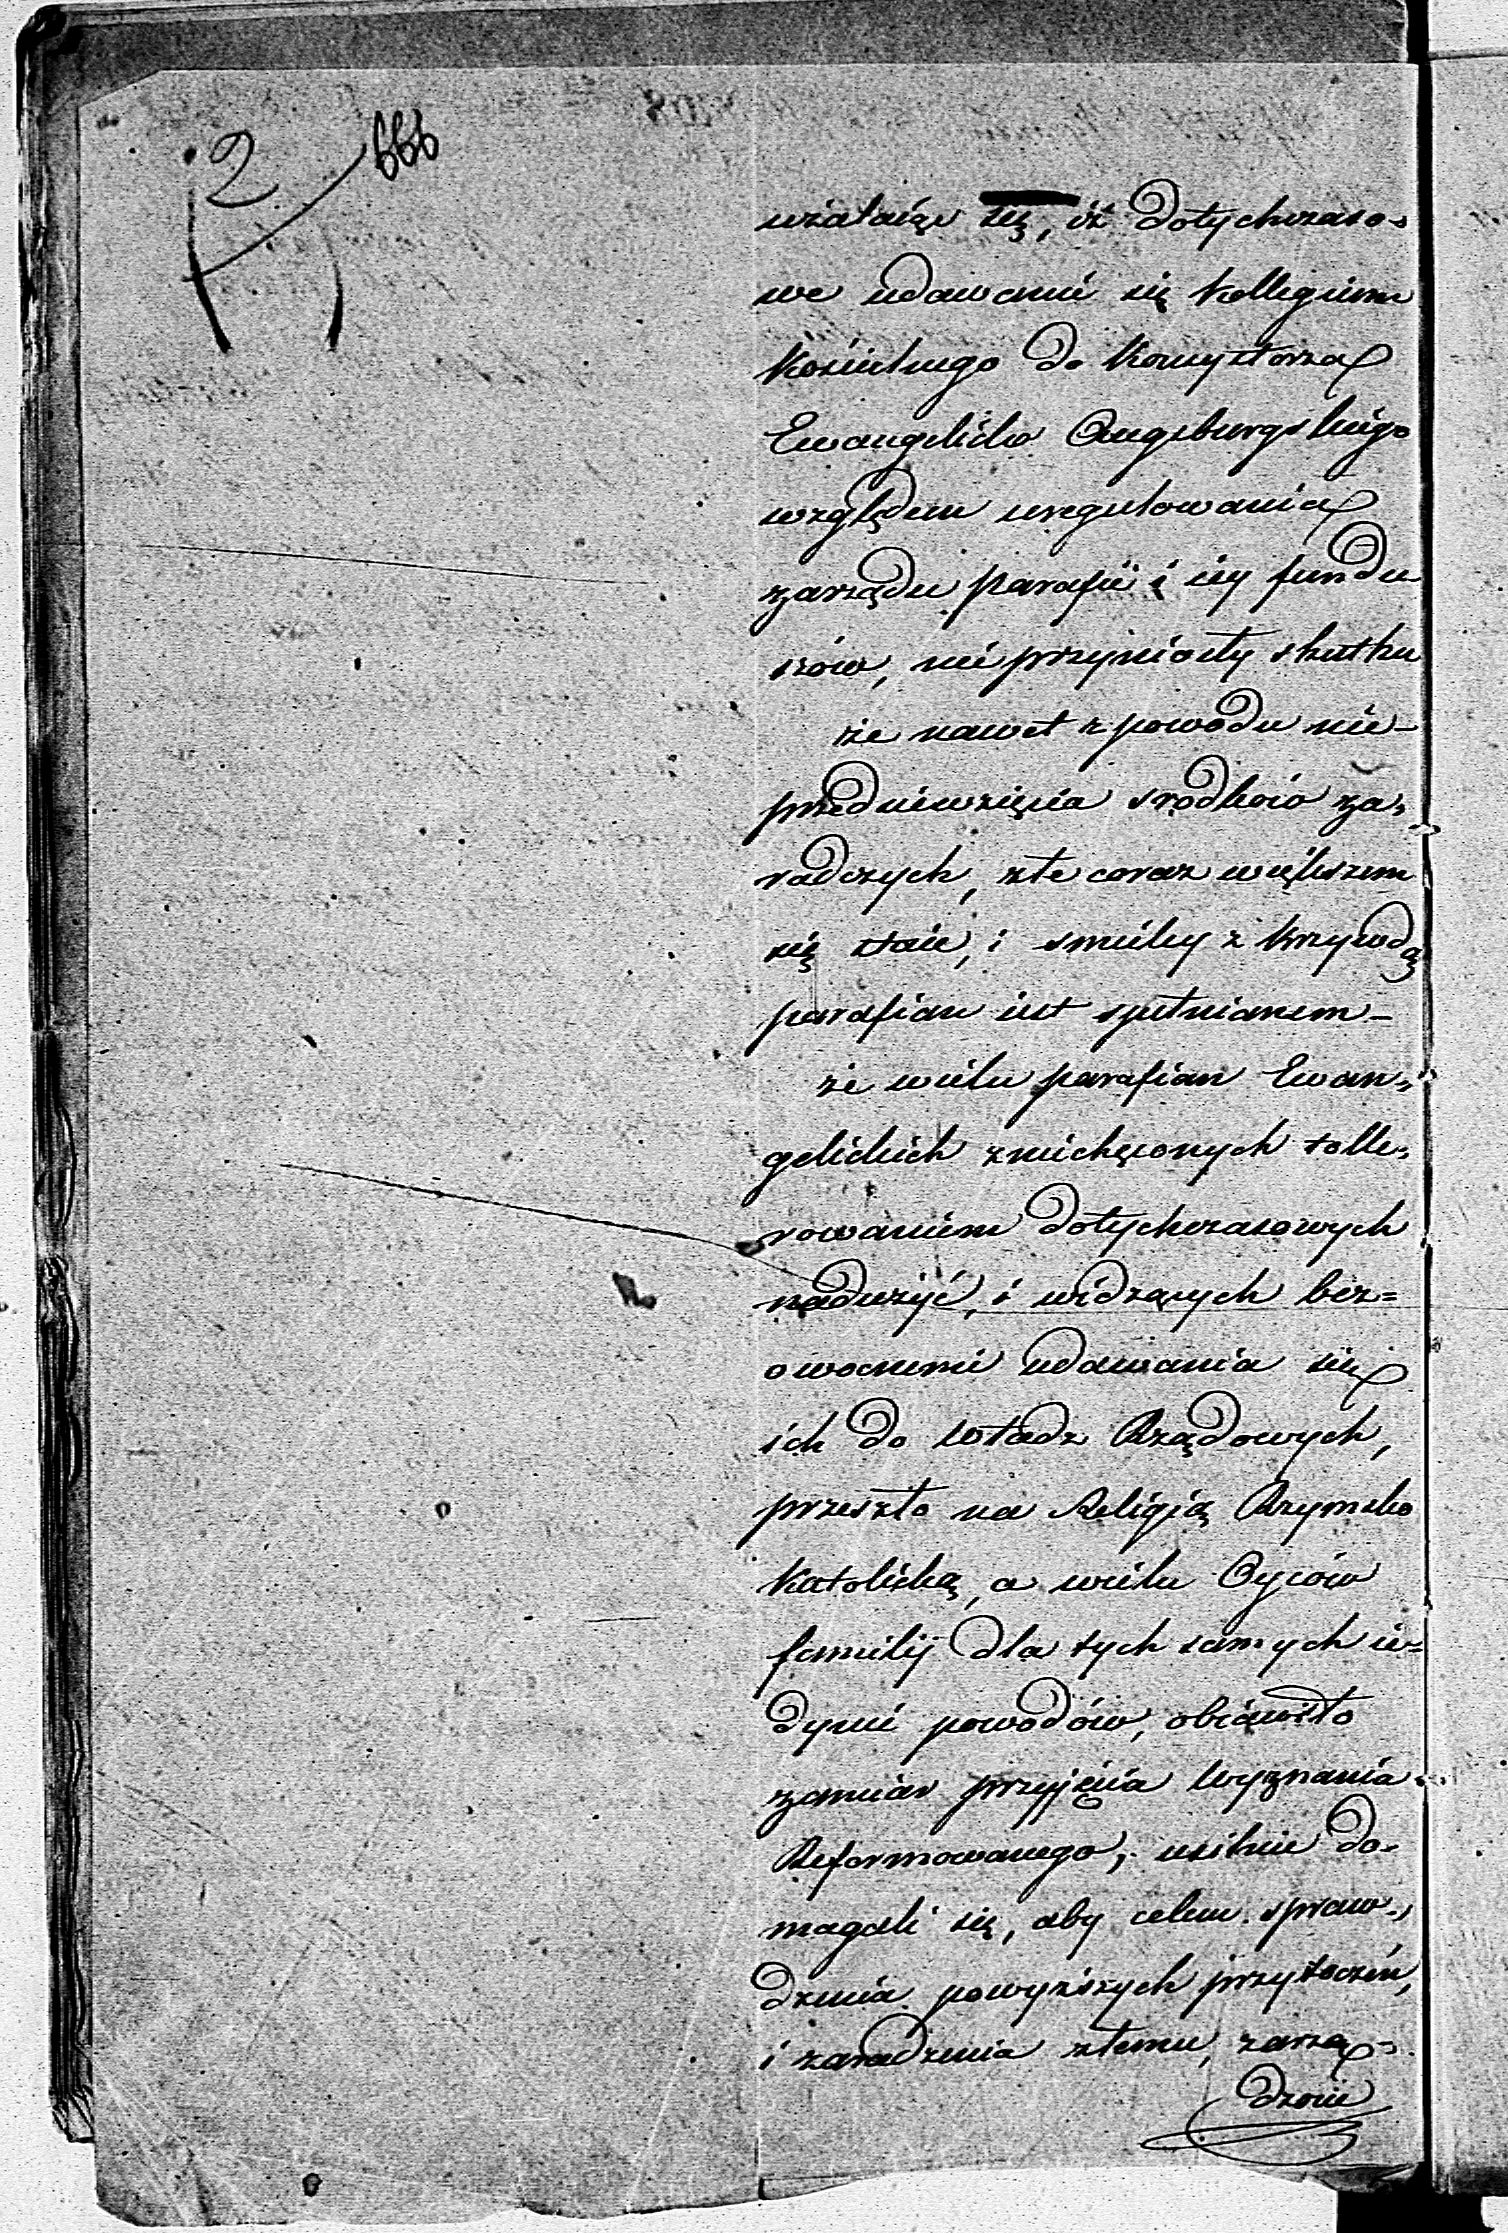 2 666
użalaiąc się, iż dotychczaso-
we udawanie się Kollegium
Kościelnego do Konsystorza
Ewangelicko Augsburgskiego
względem uregulowania
zarządu parafii i iey fundu
szów, nie przyniosły skutku
że nawet z powodu nie-
przedniewzięcia srodków za-
radczych, złe coraz większem
się staie, i smieley z krzywdą
parafian iest spełnianem-
że wielu parafian Ewan-
gelickich zniechęconych tolle-
rowaniem dotychczasowych
nadużyć, i widzących bez=
owocnemi udawania się
ich do władz Rządowych,
przeszło na Religią Rzymsko
Katolicką, a wielu Oyców
familij dla tych samych ie=
dynie powodów, obiawiło
zamiar przyjęcia wyznania
Reformowanego; usilnie do-
magali się, aby celem spraw-
dzenia powyższych przytoczeń,
i zaradzenia złemu, zarzą-
dzone